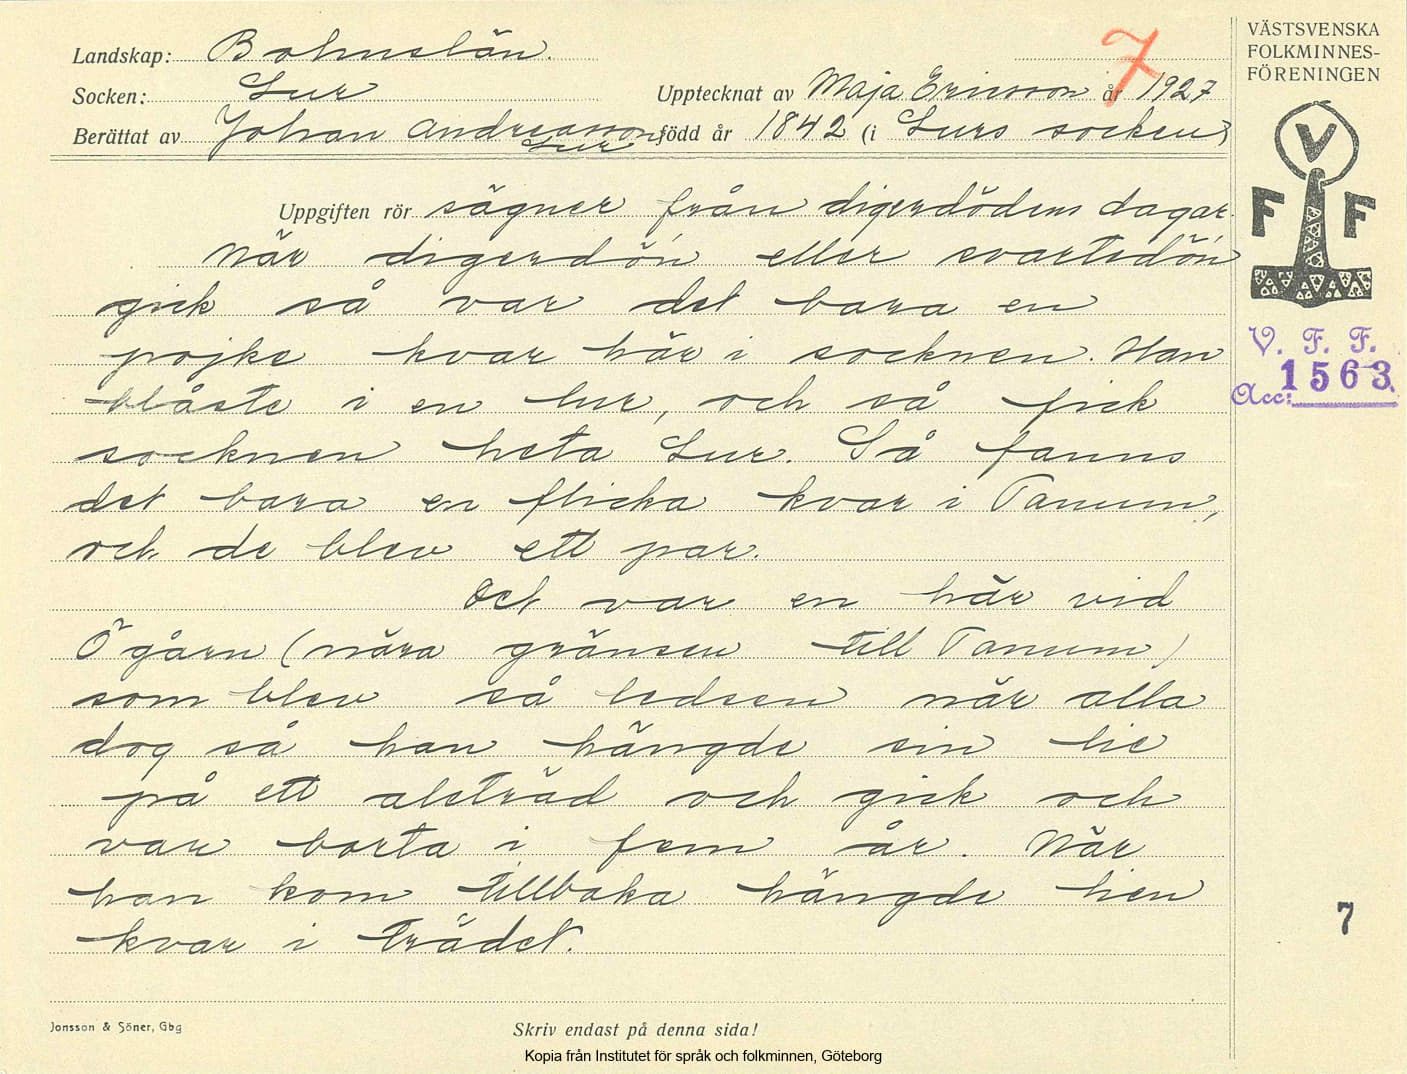 Landskap: Bohuslän.
Socken: Lur
Upptecknat av Maja Ericsson år 1927
7
Berättat av Johan Andreasson, född år 1842 (i Lurs socken)
Lur
Uppgiften rör sägner från digerdödens dagar.
När digerdön eller svartedön
gick så var det bara en
pojke kvar här i socknen. Han
blåste i en lur, och så fick
socknen heta Lur. Så fanns
det bara en flicka kvar i Tanum,
och de blev ett par.
Det var en här vid
Ögårn (nära gränsen till Tanum)
som blev så ledsen när alla
dog så han hängde sin lie
på ett alsträd och gick och
var borta i fem år. När
han kom tillbaka hängde lien
kvar i trädet.
Jonsson & Söner, Gbg
Skriv endast på denna sida!
Kopia från Institutet för språk och folkminnen, Göteborg
VÄSTSVENSKA
FOLKMINNES-
FÖRENINGEN
V
F F
V. F. F.
Acc: 1563
7